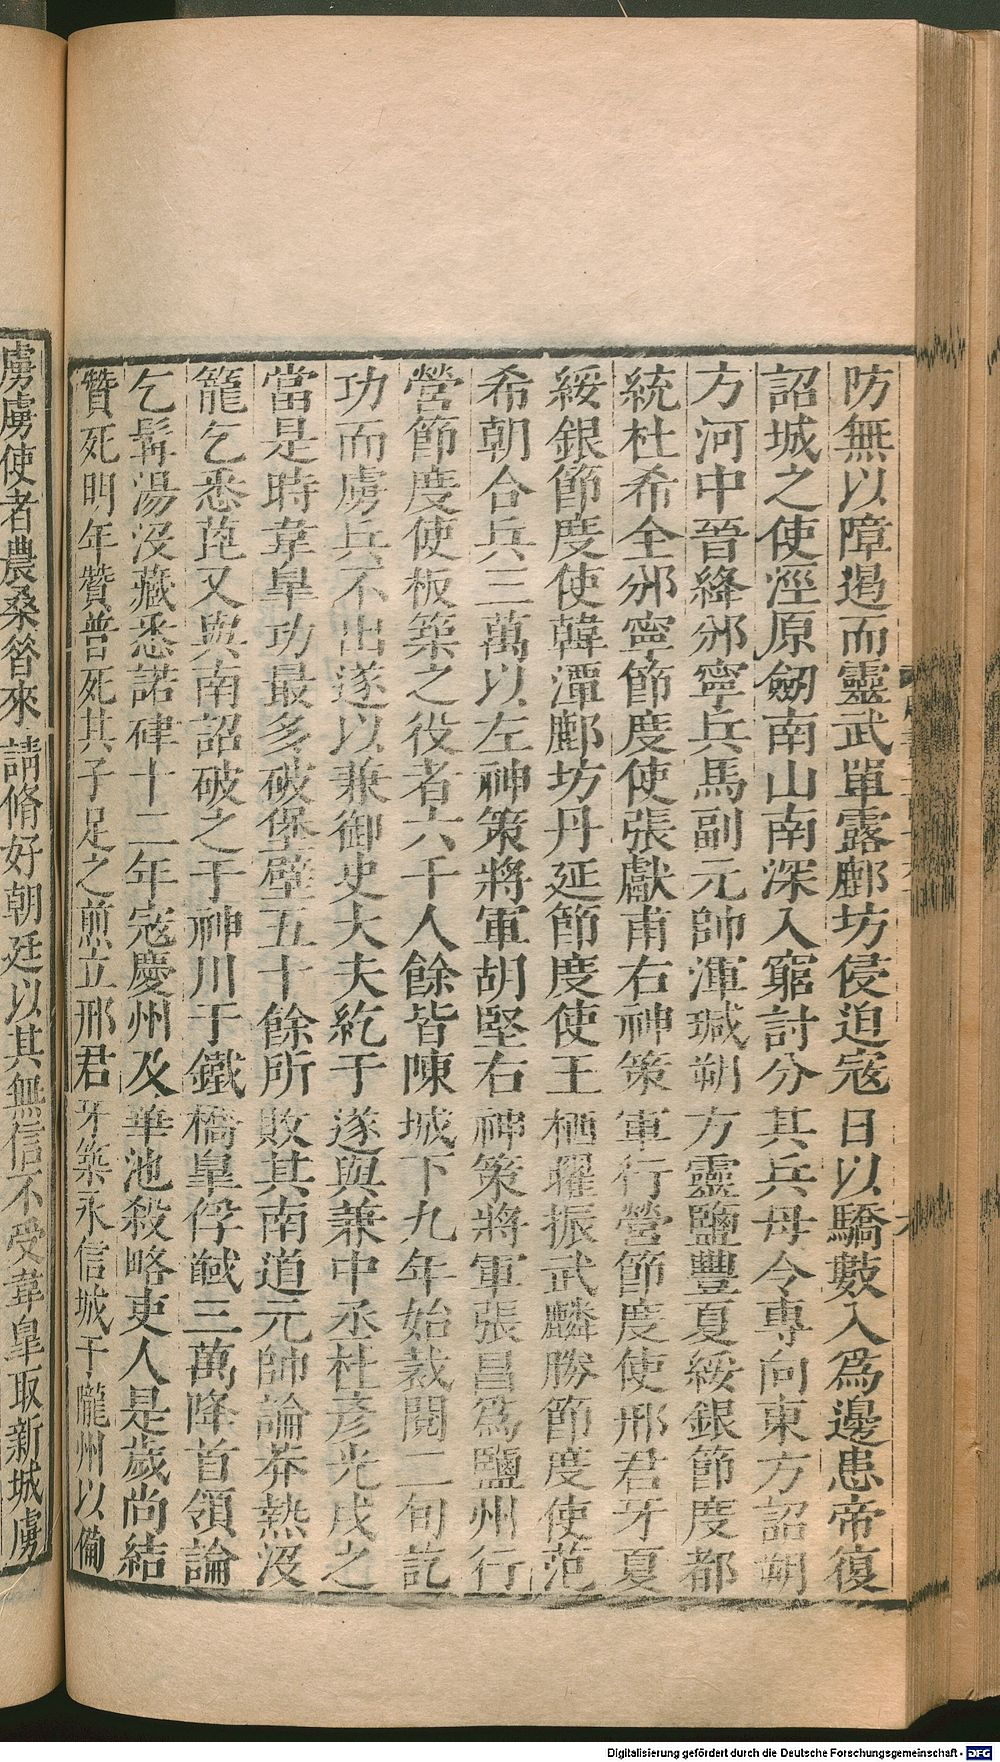 防無以障遏而靈武單露鄜坊侵迫寇日以驕數入爲邊患帝復
詔城之使涇原劒南山南深入窮討分其兵毋令專向東方詔朔
方河中晉絳邠寧兵馬副元帥渾瑊朔方靈鹽豐夏綏銀節度都
統杜希全邠寧節度使張獻甫右神策軍行營節度使邢君牙夏
綏銀節度使韓潭鄜坊丹延節度使王栖曜振武麟勝節度使范
希朝合兵三萬以左神策將軍胡堅右神策將軍張昌爲鹽州行
營節度使板築之役者六千人餘皆陳城下九年始栽閱二旬訖
功而虜兵不出遂以兼御史大夫紇于遂與兼中丞杜彥光戍之
當是時韋皐功最多破堡壁五十餘所敗其南道元帥論莽熱沒
籠乞悉蓖又與南詔破之于神川于鐵橋皐俘馘三萬降首領論
乞髯湯沒藏悉諾硉十二年寇慶州及華池殺略吏人是歲尚結
贊死明年贊普死其子足之煎立邢君牙築永信城于隴州以備
虜虜使者農桑昝來請脩好朝廷以其無信不受韋皐取新城虜
Digitalisierung gefördert durch die Deutsche Forschungsgemeinschaft - DFG